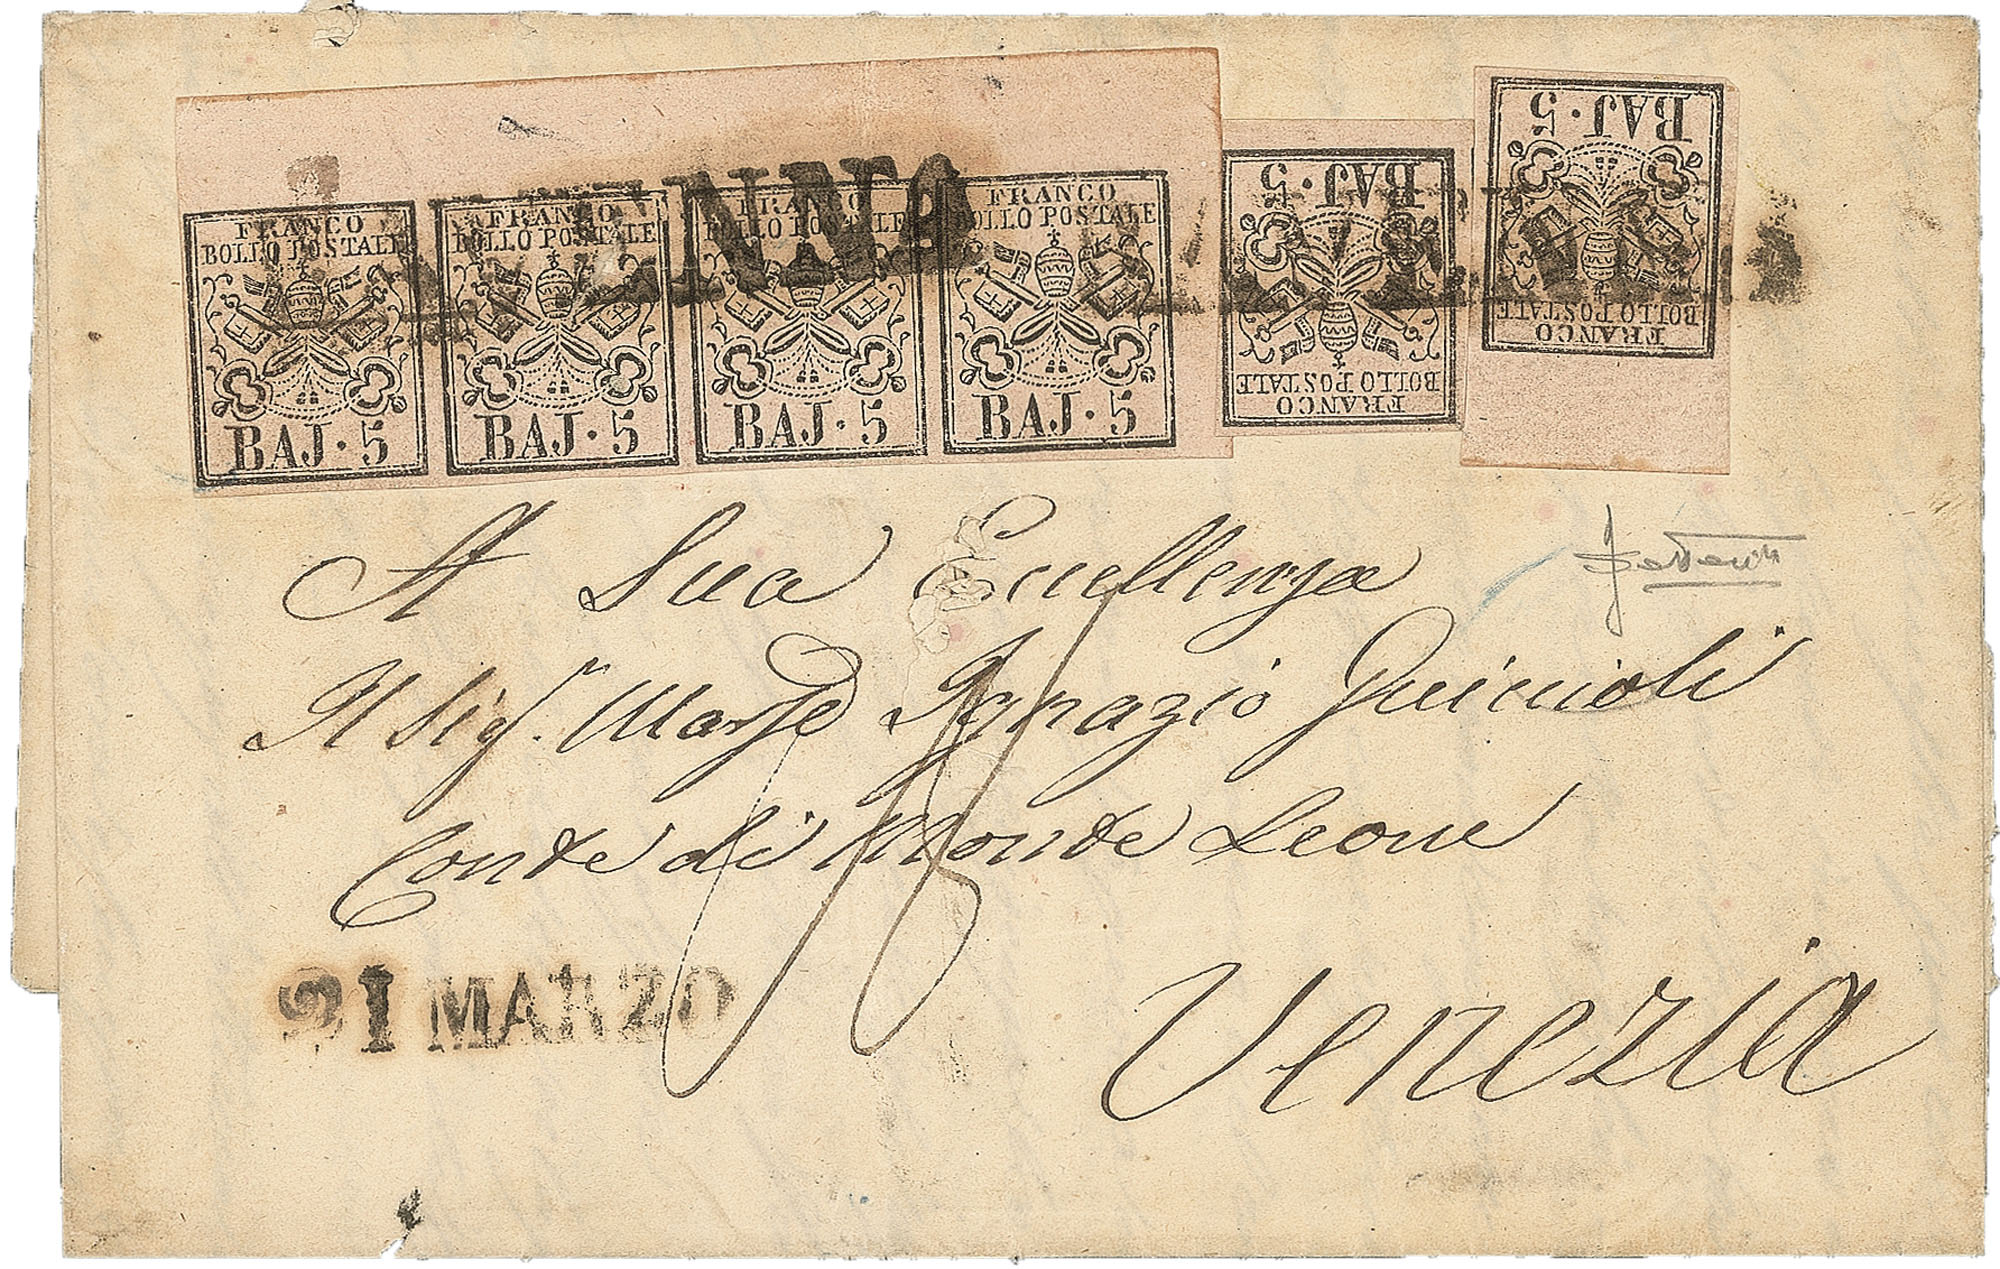 FRANCO
BOLLO POSTALE
BAJ · 5
FRANCO
BOLLO POSTALE
BAJ · 5
FRANCO
BOLLO POSTALE
BAJ · 5
FRANCO
BOLLO POSTALE
BAJ · 5
BAJ · 5
BOLLO POSTALE
FRANCO
BAJ · 5
BOLLO POSTALE
FRANCO
A Sua Eccellenza
Il Sigr. Marse Ignazio Guiccioli
Conte di Monte Leone
Venezia
21 MARZO